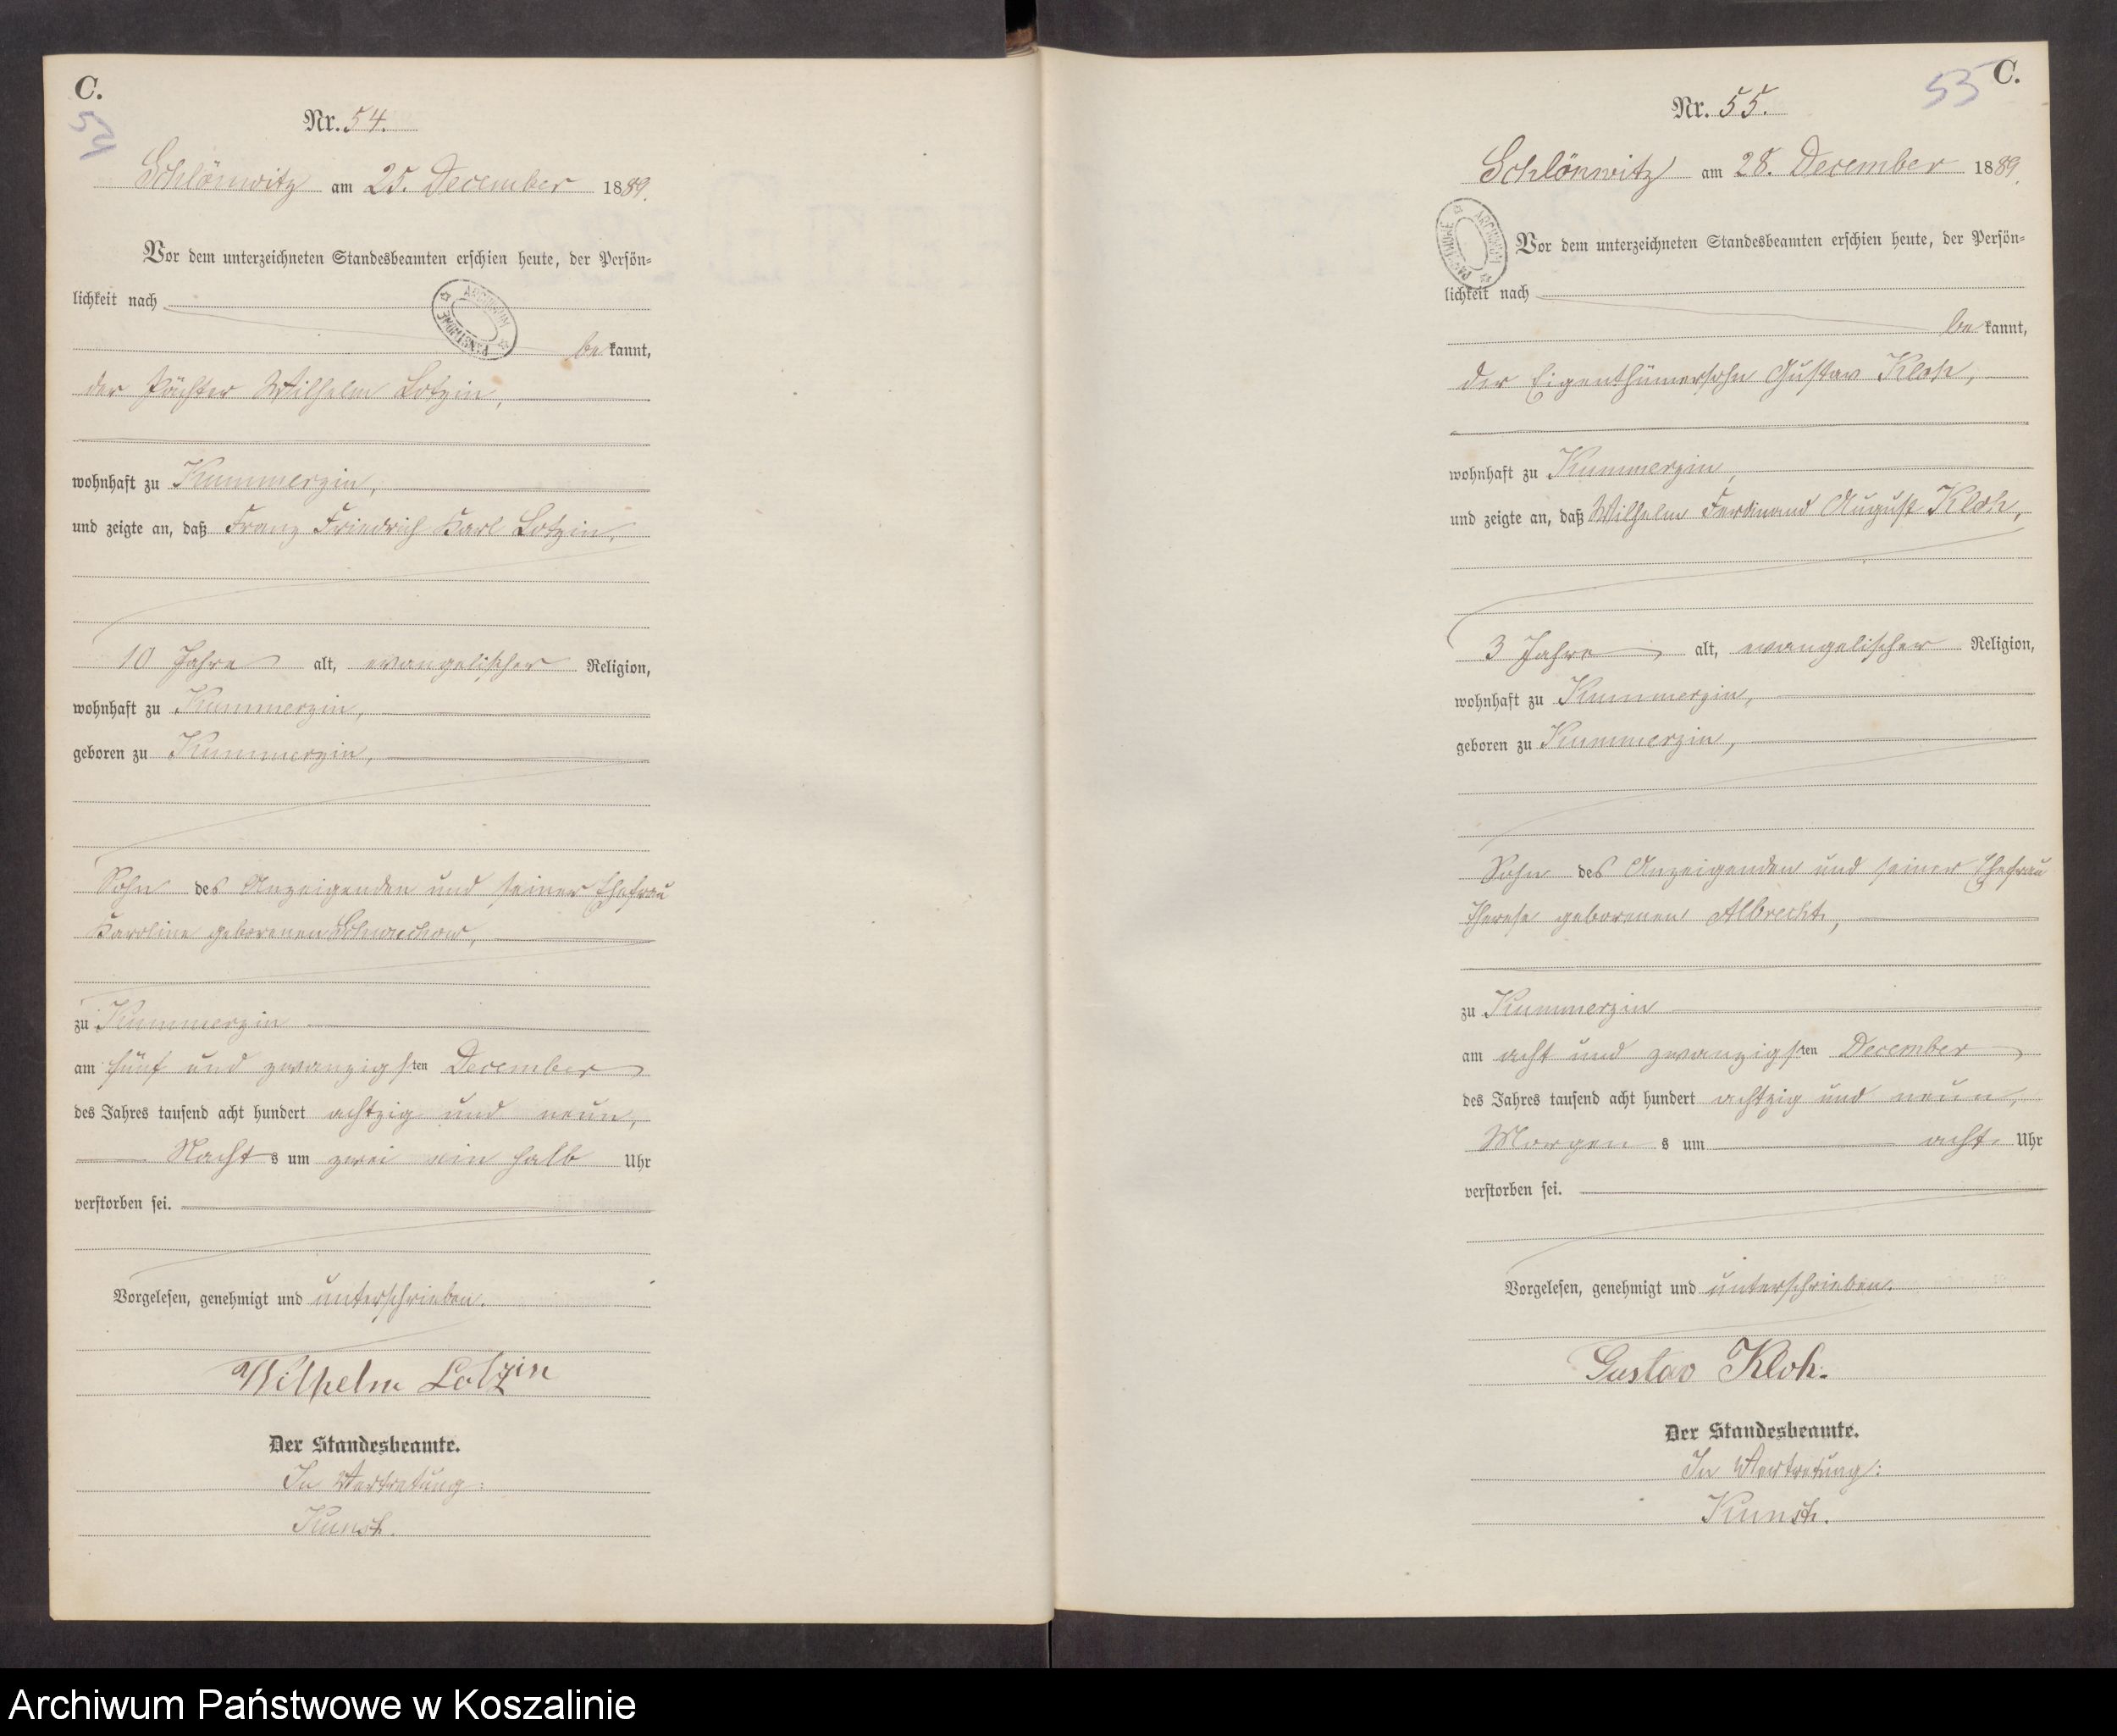 C.
54
Nr. 54.
Schlönwitz am 25. December 1889.
Vor dem unterzeichneten Standesbeamten erschien heute, der Persön-
lichkeit nach
be kannt,
der Pächter Wilhelm Lotzin,
wohnhaft zu Kummerzin,
und zeigte an, daß Franz Friedrich Karl Lotzin,
10 Jahre alt, evangelischer Religion,
wohnhaft zu Kummerzin,
geboren zu Kummerzin,
Sohn des Anzeigenden und seiner Ehefrau
Karoline geborenen
zu Kummerzin
am fünf und zwanzigsten December
des Jahres tausend acht hundert achtzig und neun,
Nachts um zwei ein halb Uhr
verstorben sei.
Vorgelesen, genehmigt und unterschrieben.
Wilhelm Lotzin
Der Standesbeamte.
In Vertretung:
ARCHIWUM PAŃSTWOWE
C.
55
Nr. 55.
Schlönwitz am 28. December 1889.
Vor dem unterzeichneten Standesbeamten erschien heute, der Persön-
lichkeit nach
be kannt,
der Eigenthümersohn Gustav Kloh,
wohnhaft zu Kummerzin,
und zeigte an, daß Wilhelm Ferdinand August Kloh,
3 Jahre alt, evangelischer Religion,
wohnhaft zu Kummerzin,
geboren zu Kummerzin,
Sohn des Anzeigenden und seiner Ehefrau
Therese geborenen Albrecht,
zu Kummerzin
am acht und zwanzigsten December
des Jahres tausend acht hundert achtzig und neun,
Morgens um acht Uhr
verstorben sei.
Vorgelesen, genehmigt und unterschrieben.
Gustav Kloh.
Der Standesbeamte.
In Vertretung:
ARCHIWUM PAŃSTWOWE
Archiwum Państwowe w Koszalinie